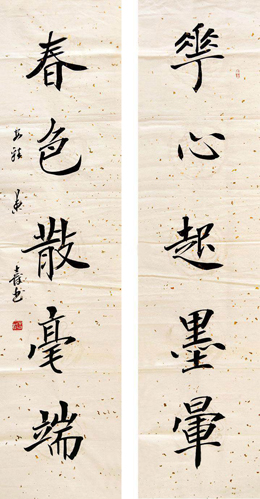 華心起墨暈
春色散毫端